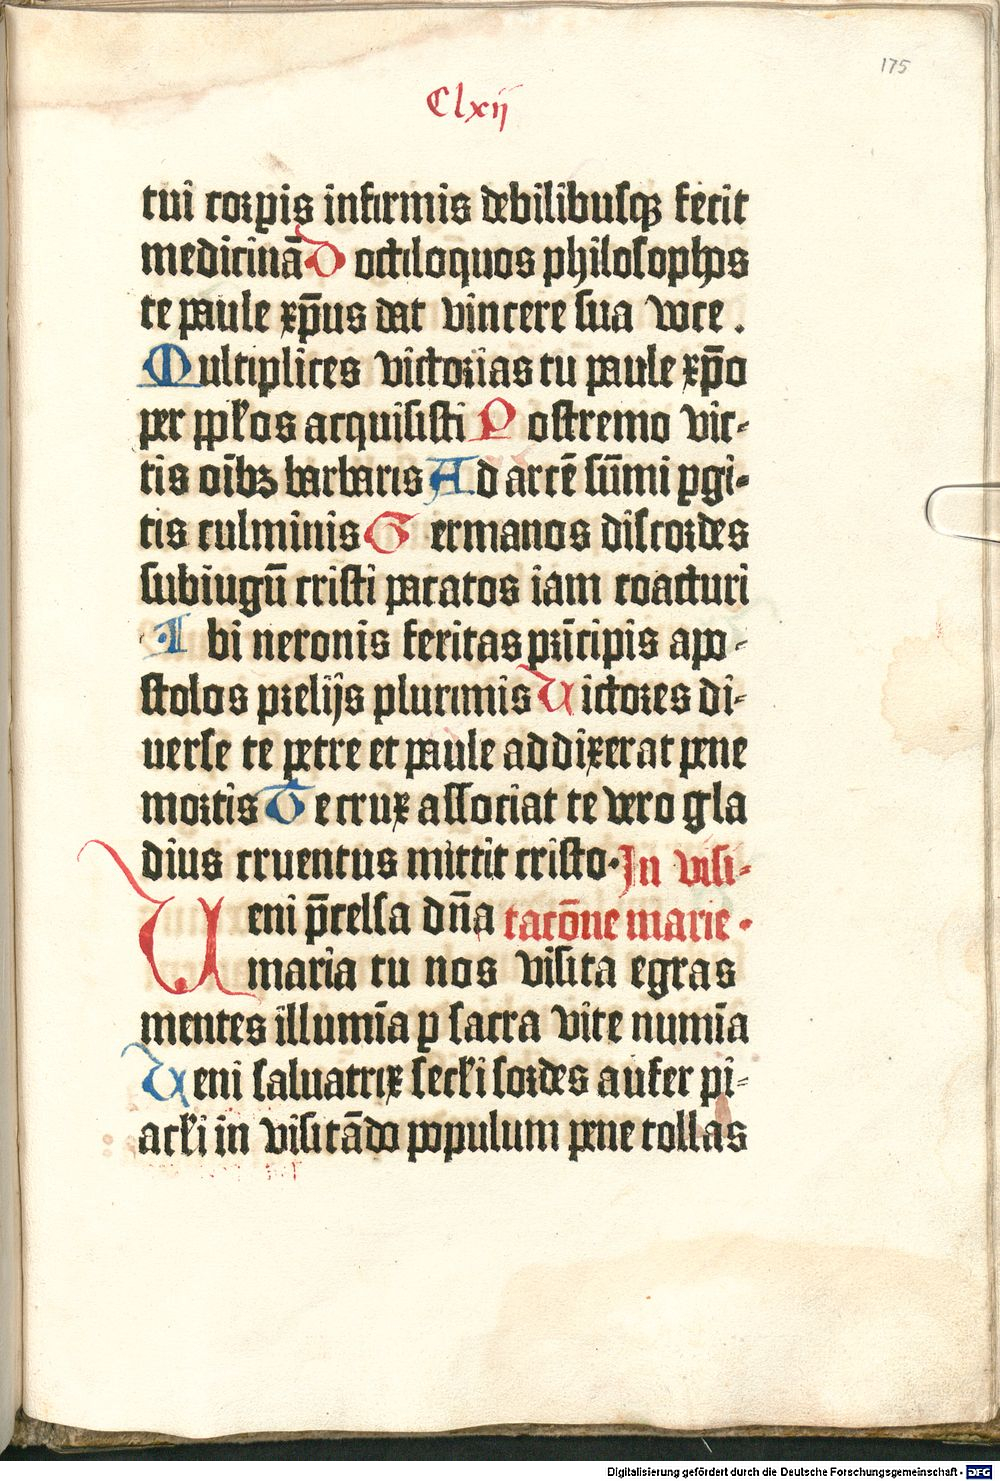 175
Clxij
tui corpis infirmis debilibusqꝫ fecit
medicinā Doctiloq̄uos philosophos
te paule xp̄us dat vincere sua voce .
Multiplices victorias tu paule xp̄o
per ppłos acquisisti Postremo vic-
tis oībꝫ barbaris Ad arcē sūmi ꝑgi-
tis culminis Germanos discordes
subiugū cristi pacatos iam coacturi
Ibi neronis feritas prīcipis apo-
stolos prelijs plurimis Uictores di-
uerse te petre et paule addixerat pene
mortis Te crux associat te vero gla
dius cruentus mittit cristo. In visi-
Ueni p̄celsa dn̄a tacōne marie.
maria tu nos visita egras
mentes illumīa ꝑ sacra vite numīa
Ueni saluatrix secłi sordes aufer pi-
acłi in visitādo populum pene tollas
Digitalisierung gefördert durch die Deutsche Forschungsgemeinschaft - DFG